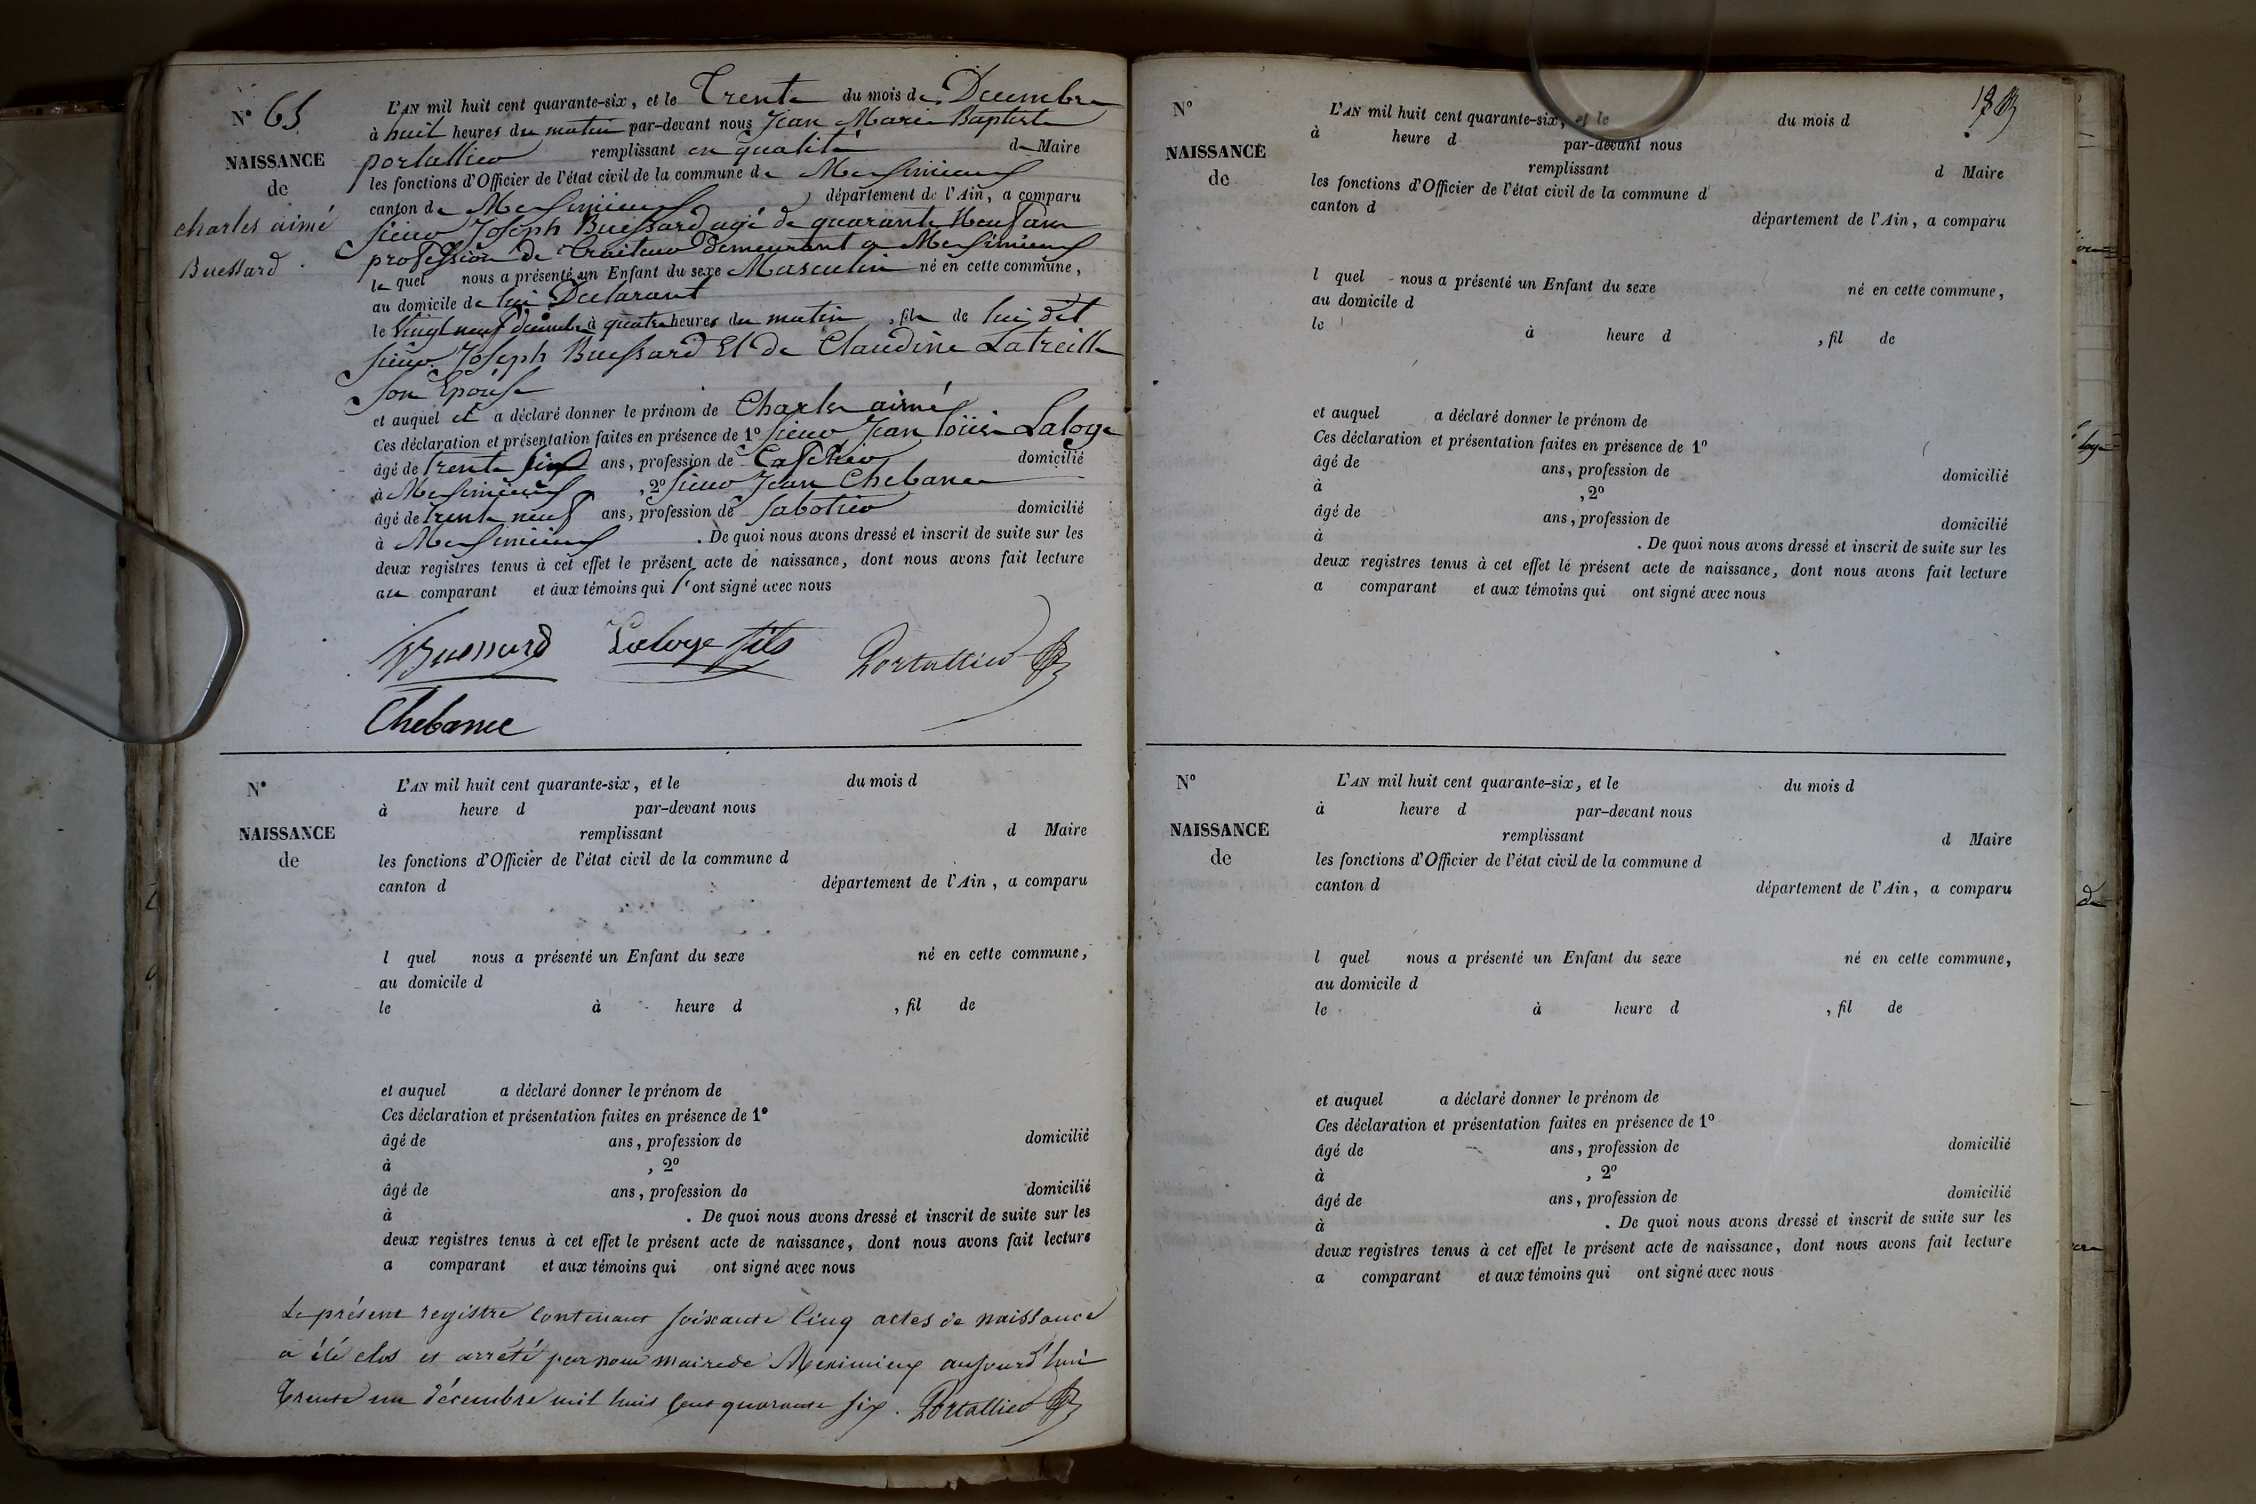 N° 65
NAISSANCE
de
charles aimé
Buessard
L'AN mil huit cent quarante-six, et le Trente du mois de Decembre
à huit heures du matin par-devant nous Jean Marie Baptiste
portallier remplissant en qualité de Maire
les fonctions d'Officier de l'état civil de la commune de Meximieux
canton de Meximieux, département de l'Ain, a comparu
sieur Joseph Buessard agé de quarante Neuf ans
profession de Traiteur demeurant a Meximieux
le quel nous a présenté un Enfant du sexe Masculin né en cette commune,
au domicile de lui Declarant
le Vingt neuf décembre à quatre heures du matin, fils de lui dit
sieur Joseph Buessard Et de Claudine Latreille
son Epouse
et auquel il a déclaré donner le prénom de Charles aimé
Ces déclaration et présentation faites en présence de 1° sieur Jean louis Laloge
âgé de trente ans, profession de domicilié
à Meximieux, 2° sieur Jean Chebance
âgé de trente neuf ans, profession de Sabotier domicilié
à Meximieux. De quoi nous avons dressé et inscrit de suite sur les
deux registres tenus à cet effet le présent acte de naissance, dont nous avons fait lecture
au comparant et aux témoins qui l'ont signé avec nous
Buessard Laloge fils Portallier
Chebance
N°
NAISSANCE
de
L'AN mil huit cent quarante-six, et le du mois d
à heure d par-devant nous
remplissant d Maire
les fonctions d'Officier de l'état civil de la commune d
canton d département de l'Ain, a comparu
l quel nous a présenté un Enfant du sexe né en cette commune,
au domicile d
le à heure d , fil de
et auquel a déclaré donner le prénom de
Ces déclaration et présentation faites en présence de 1°
âgé de ans, profession de domicilié
à , 2°
âgé de ans, profession de domicilié
à . De quoi nous avons dressé et inscrit de suite sur les
deux registres tenus à cet effet le présent acte de naissance, dont nous avons fait lecture
a comparant et aux témoins qui ont signé avec nous
Le présent registre contenant soixante cinq actes de naissance
a été clos et arrêté par nous maire de Meximieux aujourd'hui
trente un décembre mil huit cent quarante six. Portallier
N°
NAISSANCE
de
L'AN mil huit cent quarante-six, et le du mois d
à heure d par-devant nous
remplissant d Maire
les fonctions d'Officier de l'état civil de la commune d
canton d département de l'Ain, a comparu
l quel nous a présenté un Enfant du sexe né en cette commune,
au domicile d
le à heure d , fil de
et auquel a déclaré donner le prénom de
Ces déclaration et présentation faites en présence de 1°
âgé de ans, profession de domicilié
à , 2°
âgé de ans, profession de domicilié
à . De quoi nous avons dressé et inscrit de suite sur les
deux registres tenus à cet effet le présent acte de naissance, dont nous avons fait lecture
a comparant et aux témoins qui ont signé avec nous
N°
NAISSANCE
de
L'AN mil huit cent quarante-six, et le du mois d
à heure d par-devant nous
remplissant d Maire
les fonctions d'Officier de l'état civil de la commune d
canton d département de l'Ain, a comparu
l quel nous a présenté un Enfant du sexe né en cette commune,
au domicile d
le à heure d , fil de
et auquel a déclaré donner le prénom de
Ces déclaration et présentation faites en présence de 1°
âgé de ans, profession de domicilié
à , 2°
âgé de ans, profession de domicilié
à . De quoi nous avons dressé et inscrit de suite sur les
deux registres tenus à cet effet le présent acte de naissance, dont nous avons fait lecture
a comparant et aux témoins qui ont signé avec nous